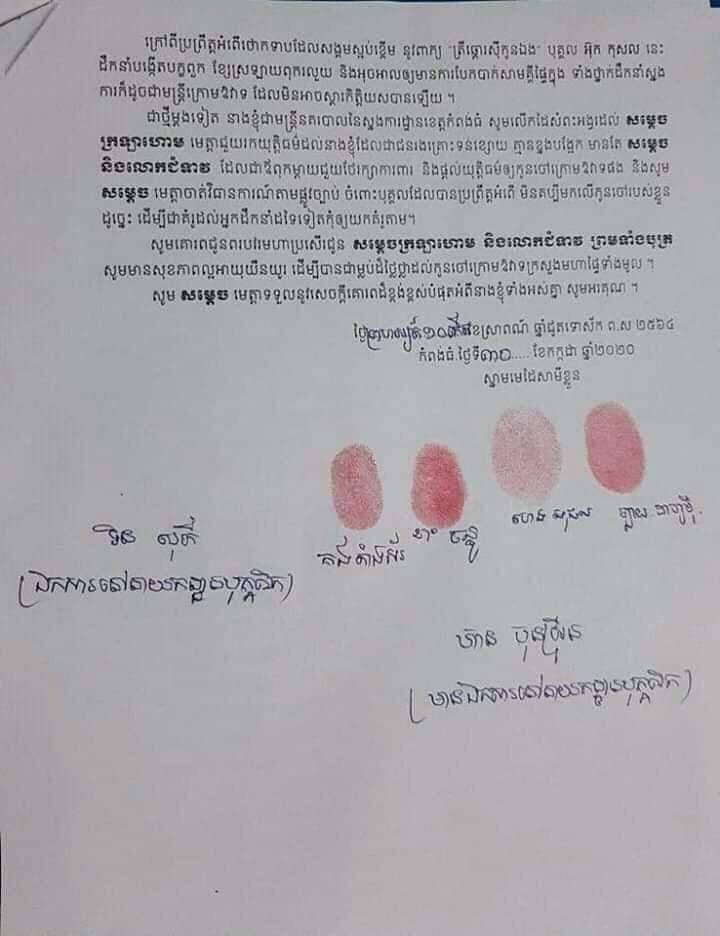 ក្រៅពីប្រព្រឹត្តអំពើថោកទាបដែលសង្គមស្អប់ខ្ពើម នូវពាក្យ "ត្រីឆ្តោរស៊ីកូនឯង" បុគ្គល អ៊ុក កុសល នេះ
ដឹកនាំបង្កើតបក្ខពួក ខ្សែស្រឡាយពុករលួយ និងអុចអាលឲ្យមានការបែកបាក់សាមគ្គីផ្ទៃក្នុង ទាំងថ្នាក់ដឹកនាំស្នង
ការក៏ដូចជាមន្ត្រីក្រោមឱវាទ ដែលមិនអាចស្តារកិត្តិយសបានឡើយ ។
ជាថ្មីម្តងទៀត នាងខ្ញុំជាមន្ត្រីនគរបាលនៃស្នងការដ្ឋានខេត្តកំពង់ធំ សូមលើកដៃសំពះអង្វរដល់ សម្តេច
ក្រឡាហោម មេត្តាជួយរកយុត្តិធម៌ដល់នាងខ្ញុំដែលជាជនរងគ្រោះទន់ខ្សោយ គ្មានខ្នងបង្អែក មានតែ សម្តេច
និងលោកជំទាវ ដែលជាឪពុកម្តាយជួយថែរក្សាការពារ និងផ្តល់យុត្តិធម៌ឲ្យកូនចៅក្រោមឱវាទផង និងសូម
សម្តេច មេត្តាចាត់វិធានការណ៍តាមផ្លូវច្បាប់ ចំពោះបុគ្គលដែលបានប្រព្រឹត្តអំពើ មិនគប្បីមកលើកូនចៅរបស់ខ្លួន
ដូច្នេះ ដើម្បីជាគំរូដល់អ្នកដឹកនាំដទៃទៀតកុំឲ្យយកគំរូតាម។
សូមគោរពជូនពរបវរមហាប្រសើរជូន សម្តេចក្រឡាហោម និងលោកជំទាវ ព្រមទាំងបុត្រ
សូមមានសុខភាពល្អអាយុយឺនយូរ ដើម្បីបានជាម្លប់ដ៏ថ្លៃថ្លាដល់កូនចៅក្រោមឱវាទក្រសួងមហាផ្ទៃទាំងមូល ។
សូម សម្តេច មេត្តាទទួលនូវសេចក្តីគោរពដ៏ខ្ពង់ខ្ពស់បំផុតអំពីនាងខ្ញុំទាំងអស់គ្នា សូមអរគុណ ។
ថ្ងៃព្រហស្បតិ៍១០កើតខែស្រាពណ៍ ឆ្នាំជូតទោស័ក ព.ស ២៥៦៤
កំពង់ធំ.ថ្ងៃទី៣០..... ខែកក្កដា ឆ្នាំ២០២០
ស្នាមមេដៃសាមីខ្លួន
ទិន សុភី